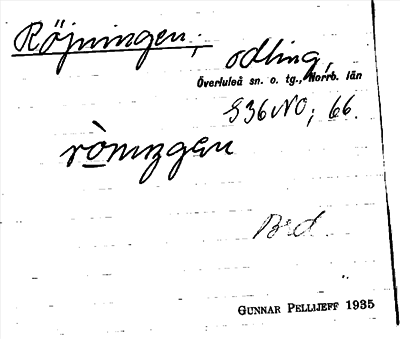 Röjningen; odling,
Överluleå sn. o. tg., Norrb. län
S36NO; 66.
GUNNAR PELLIJEFF 1935